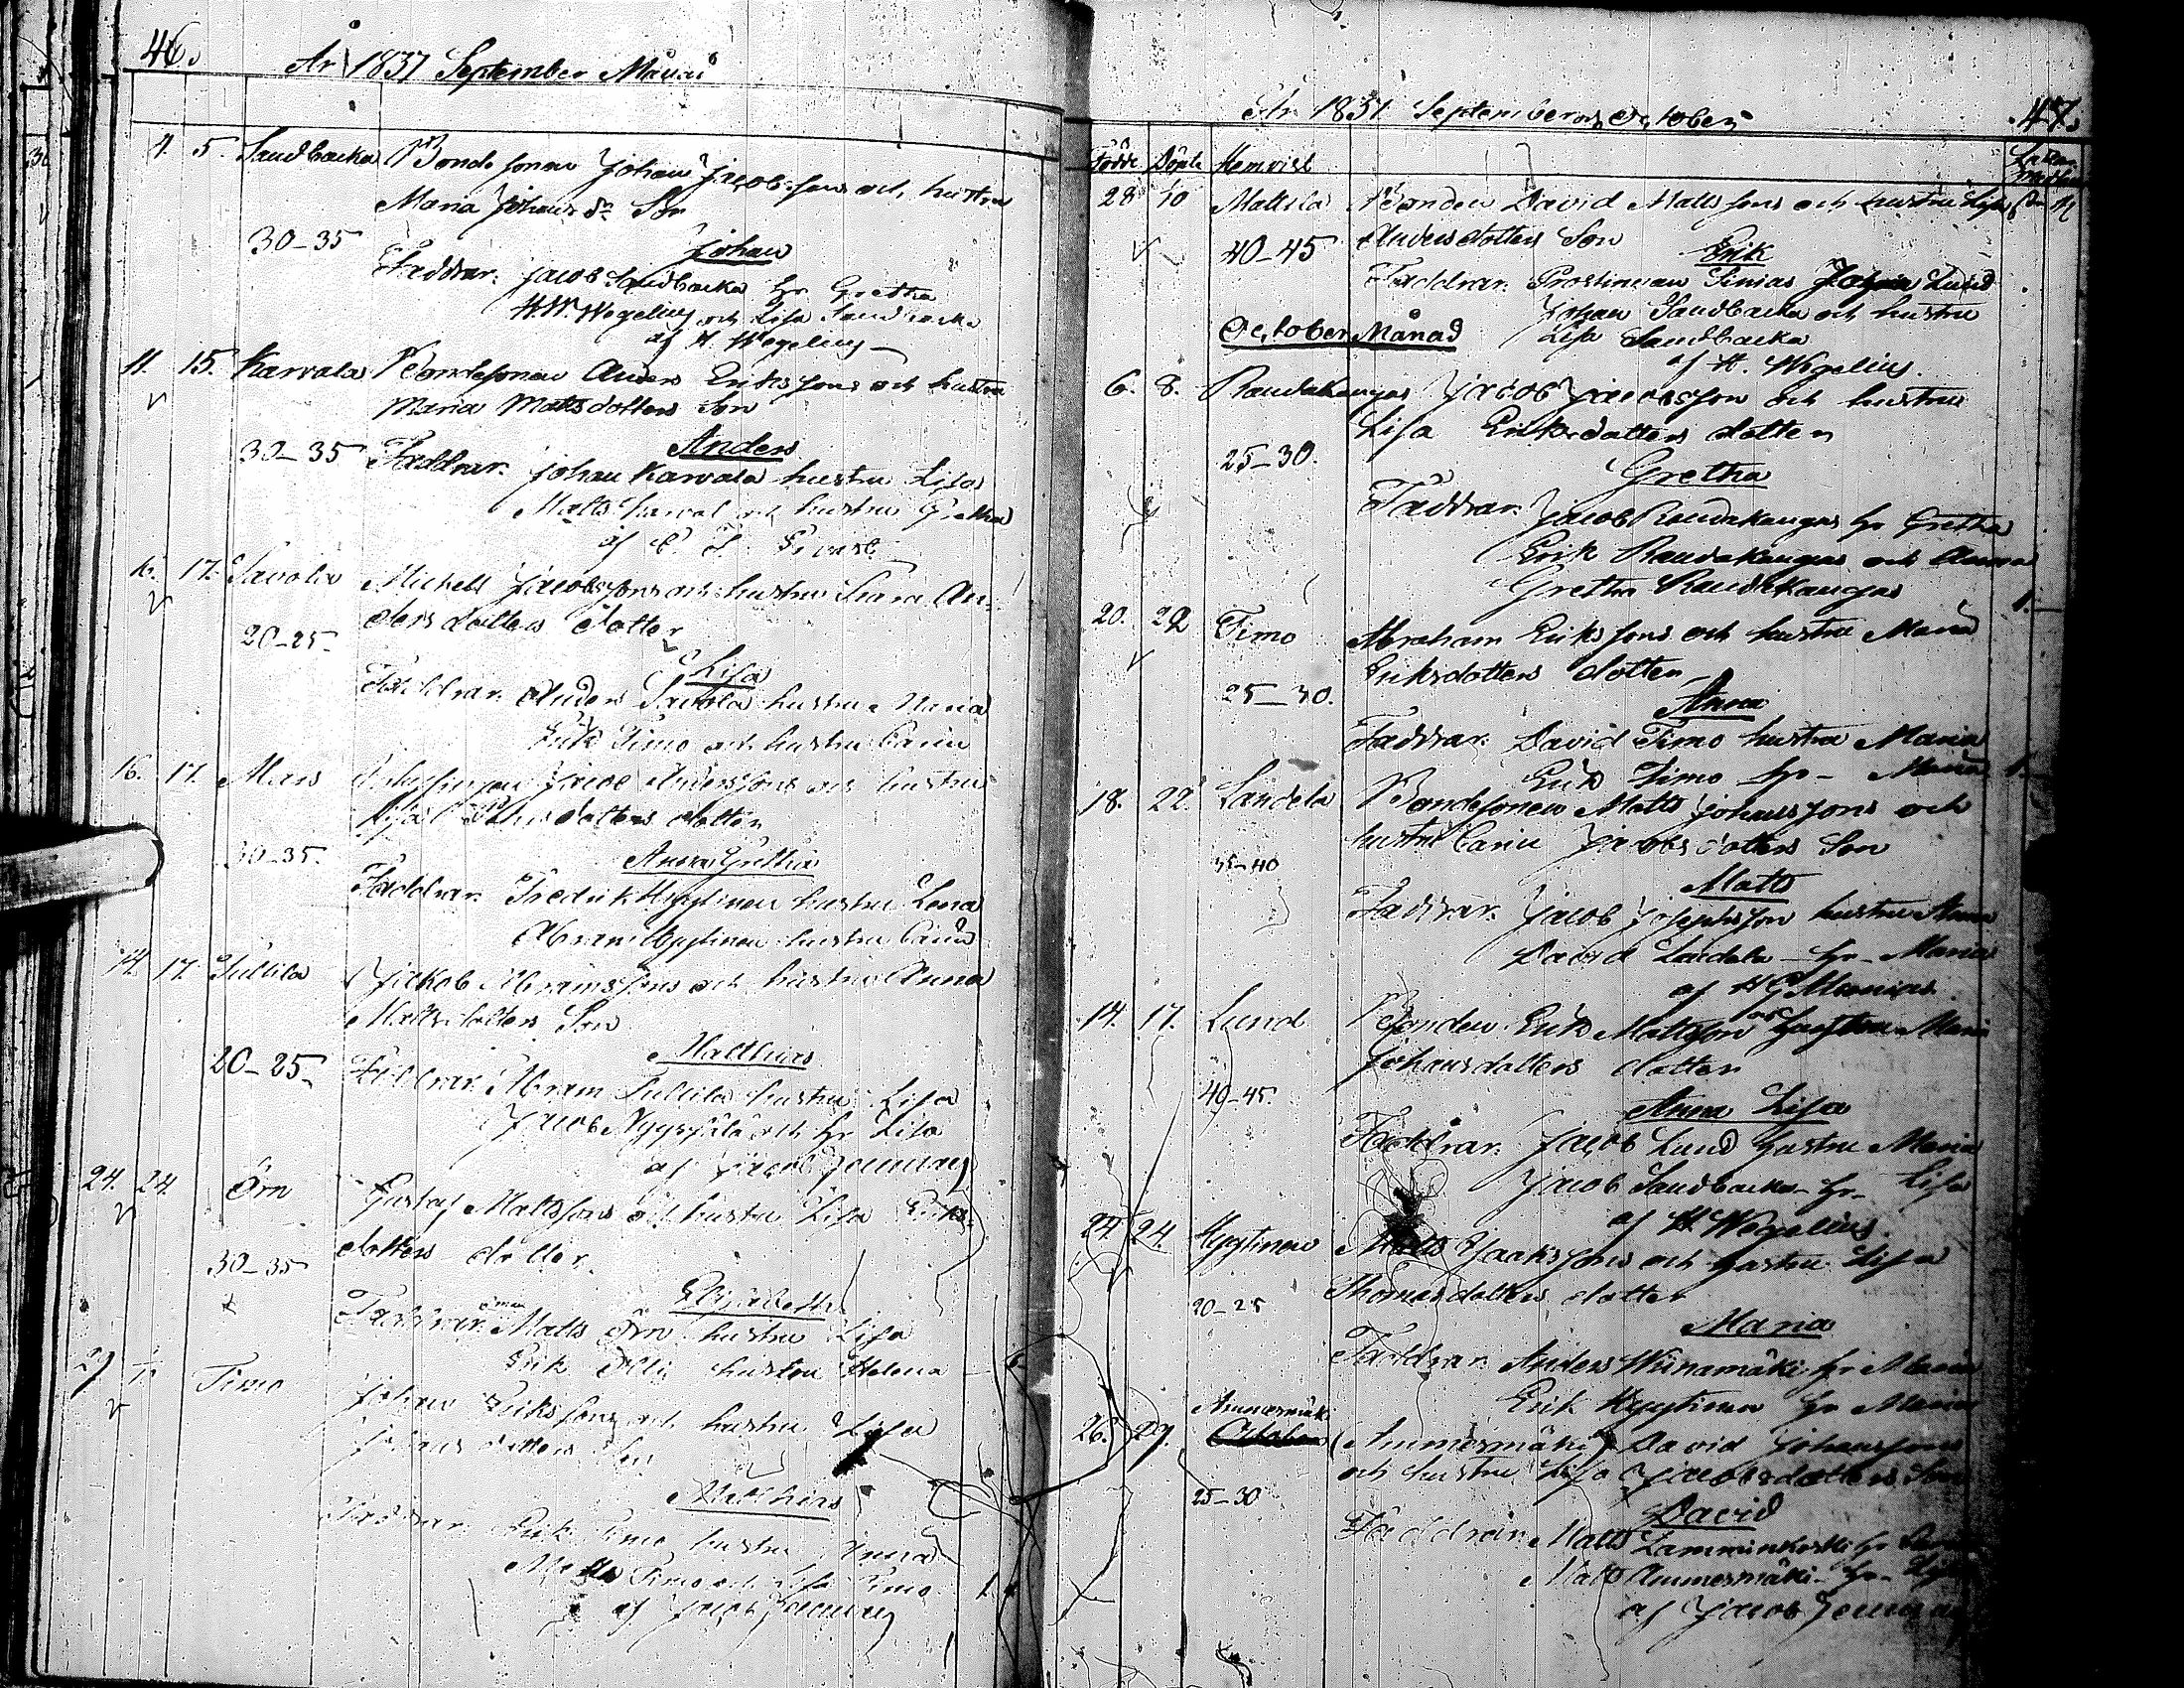 46.
År 1837 September Månad
4. 5. Sandbacka Bondesonen Johan Jacobssons och hustru
Maria Johans dr Son
30-35 Johan
Faddrar. Jacob Sandbacka hr Gretha
H.W. Wegelius och Lisa Sandbacka
af H. Wegelius
11. 15. Karvala Bondesonen Anders Erikssons och hustru
Maria Mattsdotters Son
30-35 Anders
Faddrar. Johan Karvala hustru Lisa
Matts Karval och hustru Gretha
16. 17. Savola Michell Jacobssons och hustru Sara An-
dersdotters dotter
20-25 Lisa
Faddrar. Anders Savola hustru Maria
Erik Timo och hustru Carin
16. 17. Mars Jacob Anderssons och hustru
Lisa dotters dotter
30-35. Anna Gretha
Faddrar. Fredrik Hyytinen hustru Lena
Abram Hyytinen hustru Carin
14. 17. Sullila Jakob Abramssons och hustru Anna
Mattsdotters Son
20-25 Matthias
Faddrar. Abram Sullila hustru Lisa
Jacob och hr Lisa
af Jacob
24. 24. Örn Gustaf Mattssons och hustru Lisa Eriks-
dotters dotter.
30-35
Elisabeth
Faddrar. Matts Örn hustru Lisa
Erik Olli hustru Helena
29 Timo Johan Erikssons och hustru Lisa
Johansdotters Son
Matthias
Faddrar. Erik Timo hustru Anna
Matts Timo och Lisa Timo 1.
af Jacob
År 1837 September och October 47.
Födde Döpte Hemvist
28 30 Mattila Bonden David Mattssons och hustru Lisa
40-45 Andersdotters Son
Erik
Faddrar. Lund
Johan Sandbacka och hustru
October Månad Lisa Sandbacka
af H. Wegelius.
6. 8. Raudakangas Jacob Jacobsson och hustru
Lisa Eriksdotters dotter
25-30. Gretha
Faddrar. Jacob Raudakangas hr Gretha
Erik Raudakangas och Anna
Gretha Raudakangas
20. 22 Timo Abraham Erikssons och hustru Maria 1.
Eriksdotters dotter
25-30. Anna
Faddrar. David Timo hustru Maria
Erik Timo hr - Maria 1.
18. 22. Landela Bondesonen Matts Johanssons och
hustru Carin Jacobsdotters Son
35-40 Matts
Faddrar. Jacob Josephsson hustru Anna
David Landela - hr - Maria
af
14. 17. Lund Bonden Erik Mattsson och hustru Maria
Johansdotters dotter
40-45 Anna Lisa
Faddrar. Jacob Lund hustru Maria
Jacob Sandbacka - hr - Lisa
af H. Wegelius.
24. 24. Hyytinen Matts Jaakssons och hustru Lisa
Thomasdotters dotter
20-25 Maria
Faddrar. Anders Wiinamäki hr Maria
Erik Hyytinen hr Maria
Ammesmäki
26. 29. October (Ammesmäki) David Johanssons
och hustru Lisa Jacobsdotters Son
25-30 David
Faddrar. Matts Lamminkoski hr
Matts Ammesmäki - hr - Lisa
af Jacob